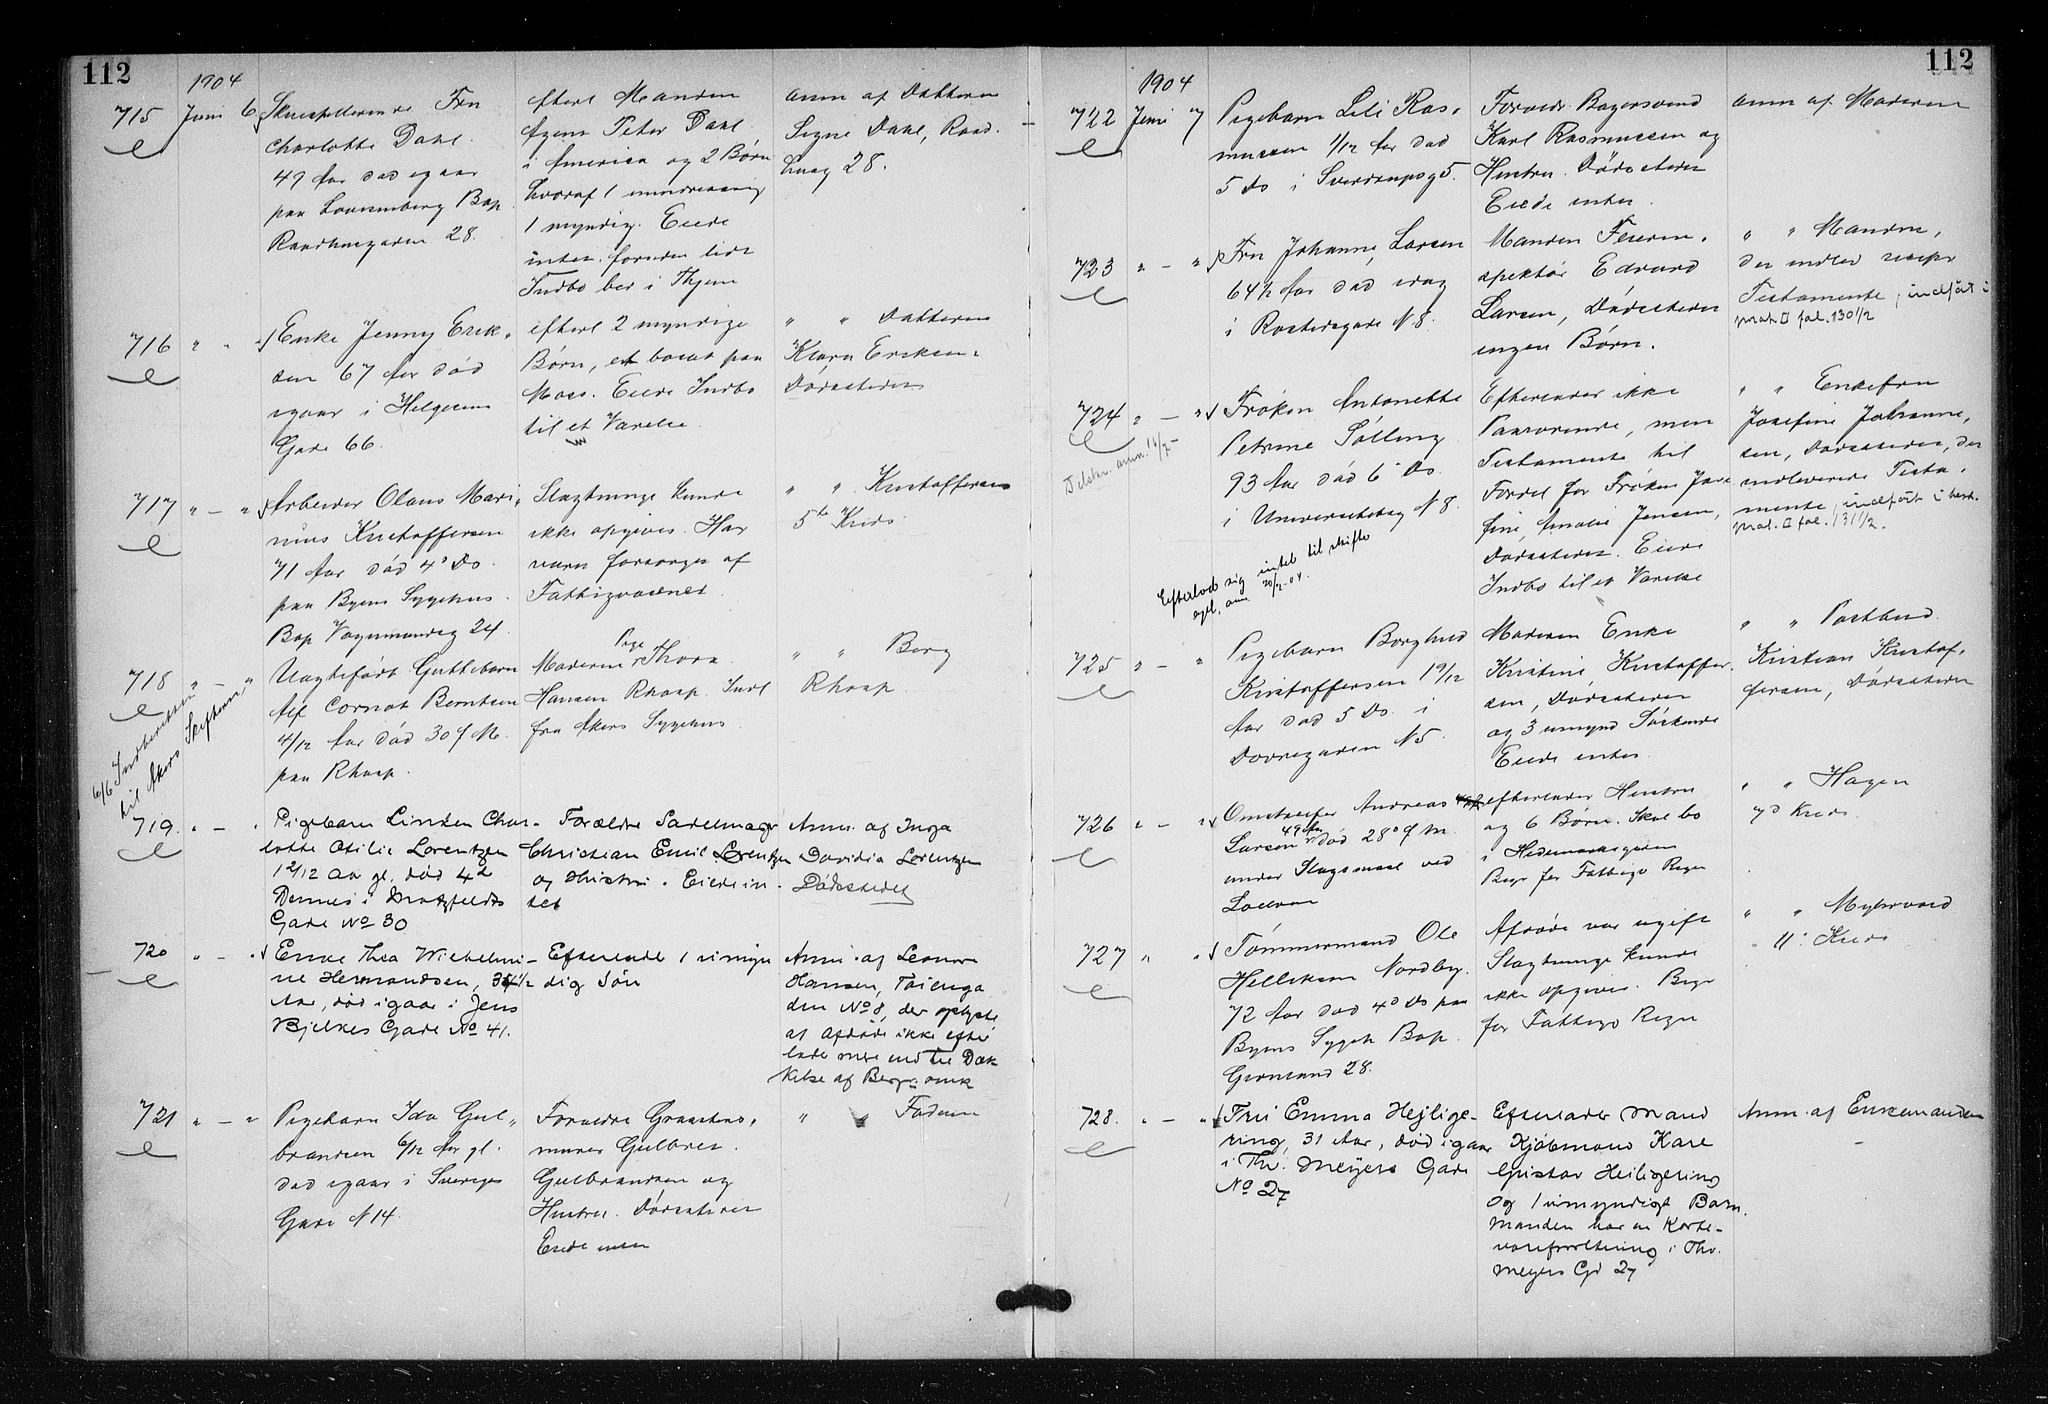 112
1904
715
Juni 6
Skuespillerinde Fru
Charlotte Dahl
49 Aar død igaar
paa Lovisenberg Bop
Raadhusgaden 28.
efterl Manden
Agent Peter Dahl
i America og 2 Børn
hvoraf 1 mindreaarig
1 myndig. Eiede
intet foruden lidt
Indbo her i Hjem
Anm af Datteren
Signe Dahl, Raad.
husg 28.
716
" "
Enke Jenny Erik-
sen 67 Aar død
igaar i Helgesens
Gade 66.
efterl 2 myndige
Børn, et bosat paa
Moss. Eiede Indbo
til et Værelse
" " Datteren
Klara Eriksen.
Dødsstedet
717
" — "
Arbeider Olaus Mari-
nius Kristoffersen
71 Aar død 4' Ds.
paa Byens Sygehus.
Bop Vognmandsg 24.
Slægtninge kunde
ikke opgives. Har
været forsørget af
Fattigvæsenet
" " Kristoffersen
5te Kreds
718
" — "
Uægtefødt Guttebarn
Alf Cornot Berntsen
4/12 Aar død 30 f M.
paa Rhosp.
Moderen Pige Thora
Hansen Rhosp. Indl
fra Akers Sygehus
" " Berg
Rhosp.
6/6 Indberettet
til Akers Skifteret
719.
" — "
Pigebarn Linken Char-
lotte Otilie Lorentzen
1 2/12 Aar gl. død 4de
Dennes i Motzfeldts
Gade No 30
Forældre Sadelmager
Christian Emil Lorentzen
og Hustru. Eiede in-
tet
Anm. af Inga
Davidia Lorentzen
Dødsstedet
720
" — "
Enke Thea Wilhelmi-
ne Hermandsen, 34 1/2
Aar, død igaar i Jens
Bjelkes Gade No 41.
Efterlade 1 umyn
dig Søn
Anm. af Leonore
Hansen, Tøienga
den No 8, der oplyste
at Afdøde ikke efter
lader mere end til Dæk
kelse af Begr. omk
721
" — "
Pigebarn Ida Gul-
brandsen 6/12 Aar gl.
død igaar i Sveriges
Gade N 14.
Forældre Graastens-
murer Gulbrei
Gulbrandsen og
Hustru. Dødsstedet
Eiede intet
" " Faderen
112
1904
722
Juni 7
Pigebarn Lili Ras-
mussen 1/12 Aar død
5 Ds i Sverdrupsg 5.
Forældr. Bagersvend
Karl Rasmussen og
Hustru. Dødsstedet
Eiede intet.
Anm af Moderen
723
" — "
Fru Johanne Larsen
64 1/2 Aar død idag
i Rostedsgade N 8.
Manden Feierin-
spektør Edvard
Larsen, Dødsstedet
ingen Børn.
" " Manden,
der indlev recipr
Testamente, indført i
prot. II fol. 130 1/2
724
" — "
Tilstr. anm. 14/7
Frøken Antonette
Petrine Sølling
93 Aar død 6' Ds.
i Universitetsg N 8.
Efterlader ikke
Paarørende, men
Testamente til
Fordel for Frøken Jose
fine Amalie Jensen,
Dødsstedet. Eiede
Indbo til et Værelse
" " Enkefru
Josefine Johanne-
sen, Dødsstedet, der
indleverede Testa-
mente, indført i test.
prot. II fol. 131 1/2.
Efterlod sig intet til skifte
opl. anm. 20/7-04.
725
" — "
Pigebarn Borghild
Kristoffersen 1 9/12
Aar død 5 Ds i
Dovregaden N 5.
Moderen Enke
Kristine Kristoffer-
sen, Dødsstedet
og 3 umynd Søskende
Eiede intet.
" " Postbud
Kristian Kristof-
fersen, Dødsstedet
726
" — "
Omstreifer Andreas
Larsen 49 Aar død 28' f M.
under Slagsmaal ved
Loelven
efterlader Hustru
og 6 Børn. Skal bo
i Hedemarksgaden
Begr for Fattigv Regn
" " Hagen
7d Kreds.
727
" "
Tømmermand Ole
Helliksen Nordby.
72 Aar død 4' Ds paa
Byens Sygeh Bop.
Grønland 28.
Afdøde var ugift
Slægtninge kunde
ikke opgives. Begr
for Fattigv Regn
" " Myhrvold
11' Kreds
728.
" — "
Fru Emma Hejlige-
ring, 31 Aar, død igaar
i Th. Meyers Gade
No 27
Efterlader Mand
Kjøbmand Karl
Gustav Heiligering
og 1 umyndigt Barn.
Manden har en Korte-
vareforretning i Thv.
Meyers Gd 27
Anm. af Enkemanden